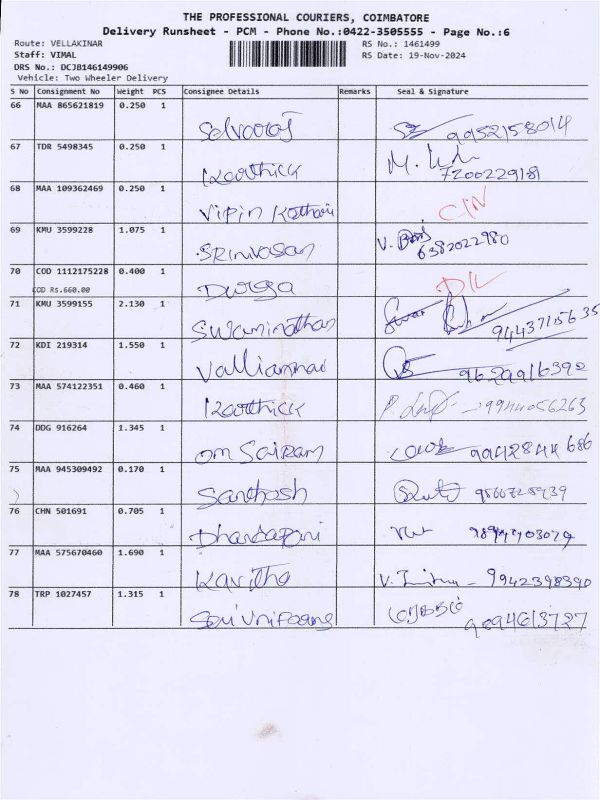 THE PROFESSIONAL COURIERS, COIMBATORE
Delivery Runsheet - PCM - Phone No.:0422-3505555 - Page No.:6
Route: VELLAKINAR RS No.: 1461499
Staff: VIMAL RS Date: 19-Nov-2024
DRS No.: DCJB146149906
Vehicle: Two Wheeler Delivery
S No Consignment No Weight PCS Consignee Details Remarks Seal & Signature
66 MAA 865621819 0.250 1
Selvaraj 9952158014
67 TDR 5498345 0.250 1
Karthick M. 7200229181
68 MAA 109362469 0.250 1
Vipin Kothari C/N
69 KMU 3599228 1.075 1
Srinivasan V. 6382022980
70 COD 1112175228 0.400 1
COD Rs.660.00 Durga D/L
71 KMU 3599155 2.130 1
Swaminathan 9443715635
72 KDI 219314 1.550 1
Valliammai 9629916392
73 MAA 574122351 0.460 1
Karthick P. 9944056263
74 DDG 916264 1.345 1
Om Sairam 9942844686
75 MAA 945309492 0.170 1
Santhosh
76 CHN 501691 0.705 1
Dhandapani
77 MAA 575670460 1.690 1
Kavitha V. 9942398390
78 TRP 1027457 1.315 1
Sai Uniforms 9094613727